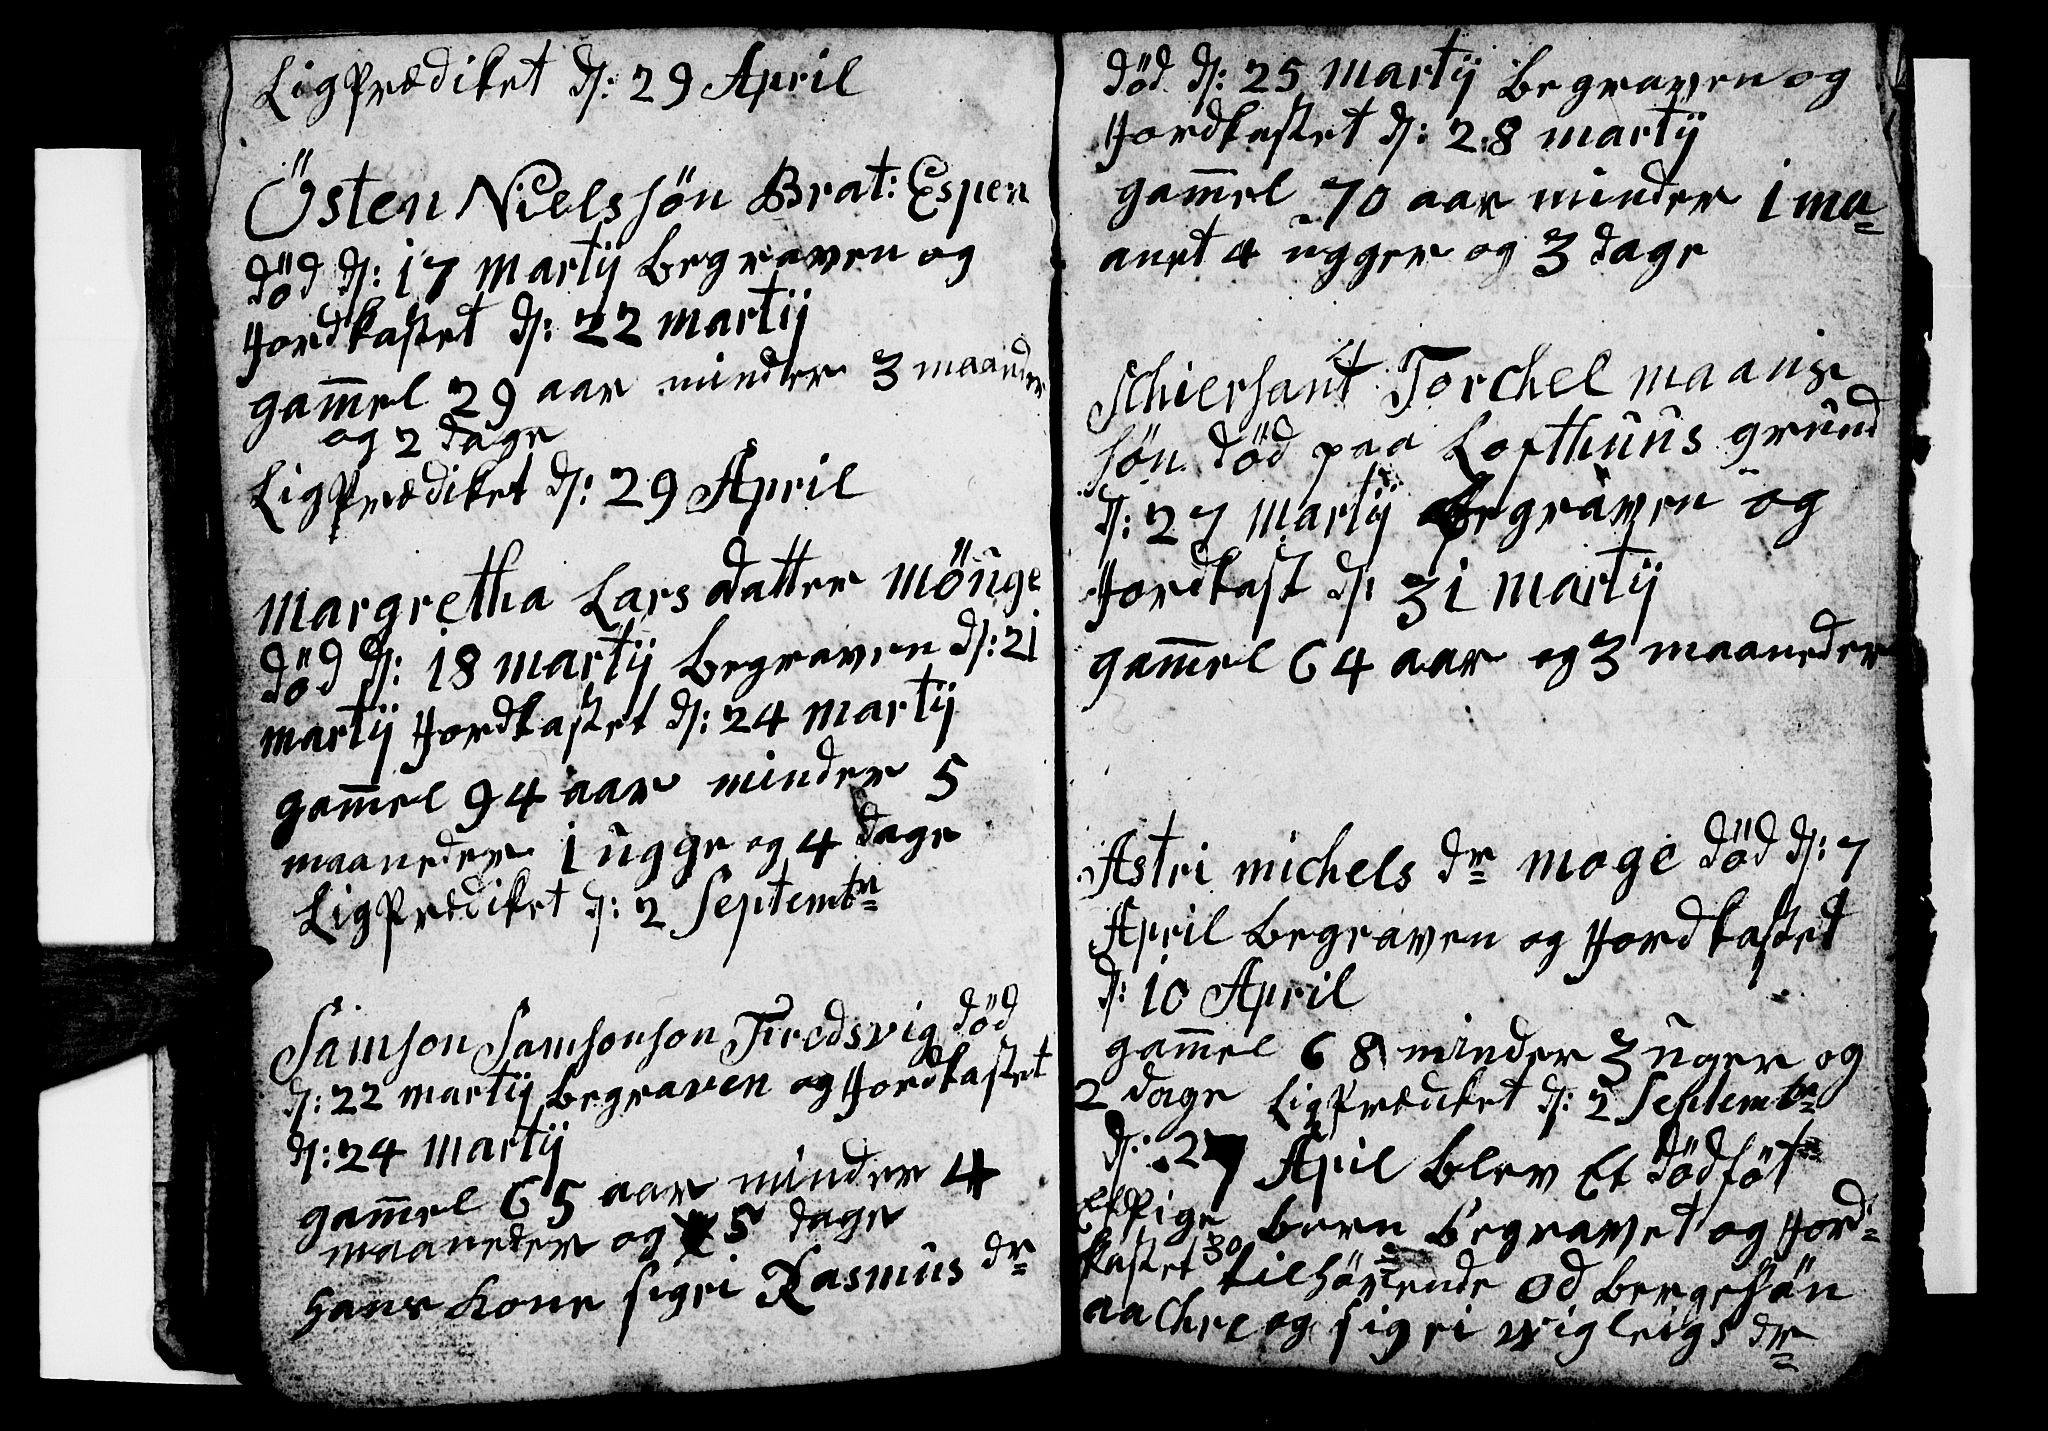 LigPrædiket d: 29 April
Östen Nielssön Brat: Espen
död d: 17 Martij begraven og
Jordkastet d: 22 martij
gam̄el 29 aar minder 3 maaneder
og 2 dage
LigPrædiket d: 29 April
Margretha Larsdatter Möuge
död d: 18 martij begraven d: 21
martij Jordkastet d: 24 martij
gam̄el 94 aar minder 5
maaneder 1 ugge og 4 dage
LigPrædiket d: 2 Septembr
Samson Samsonson Tredsvig död
d: 22 martij begraven og Jordkastet
d: 24 martij
gam̄el 65 aar minder 4
maaneder og 5 dage
hans kone sigri Rasmus dr
död d: 25 martij begraven og
Jordkastet d: 28 martij
gam̄el 70 aar minder 1 ma=
anet 4 ugger og 3 dage
Schiersant Torchel maans
sön död paa Lofthuus grund
d: 27 martij begraven og
Jordkast d: 31 martij
gam̄el 64 aar og 3 maaneder
Astri michels dr moge död d: 7
April begraven og Jordkastet
d: 10 April
gam̄el 68 minder 3 uger og
2 dage LigPrædiket d: 2 Septembr
d: 27 Apil blev Et dödföt
Pige born begravet og Jord=
kastet 30 tilhörende Od bergesön
aachre og sigri vigleigs dr